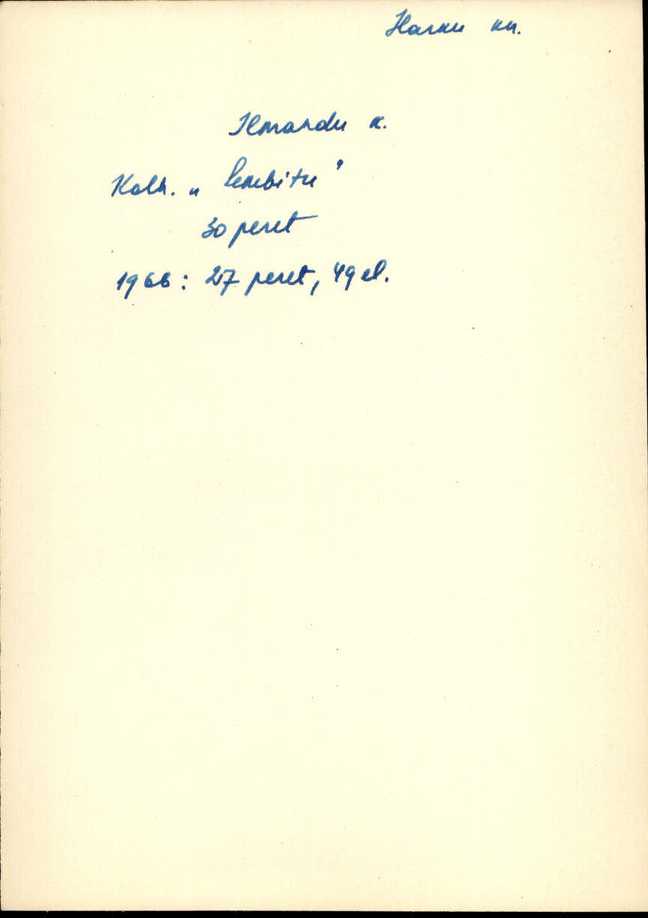 Harku kn.
Ilmandu k.
Kolh. „Lembitu"
30 peret
1966: 27 peret, 49 el.